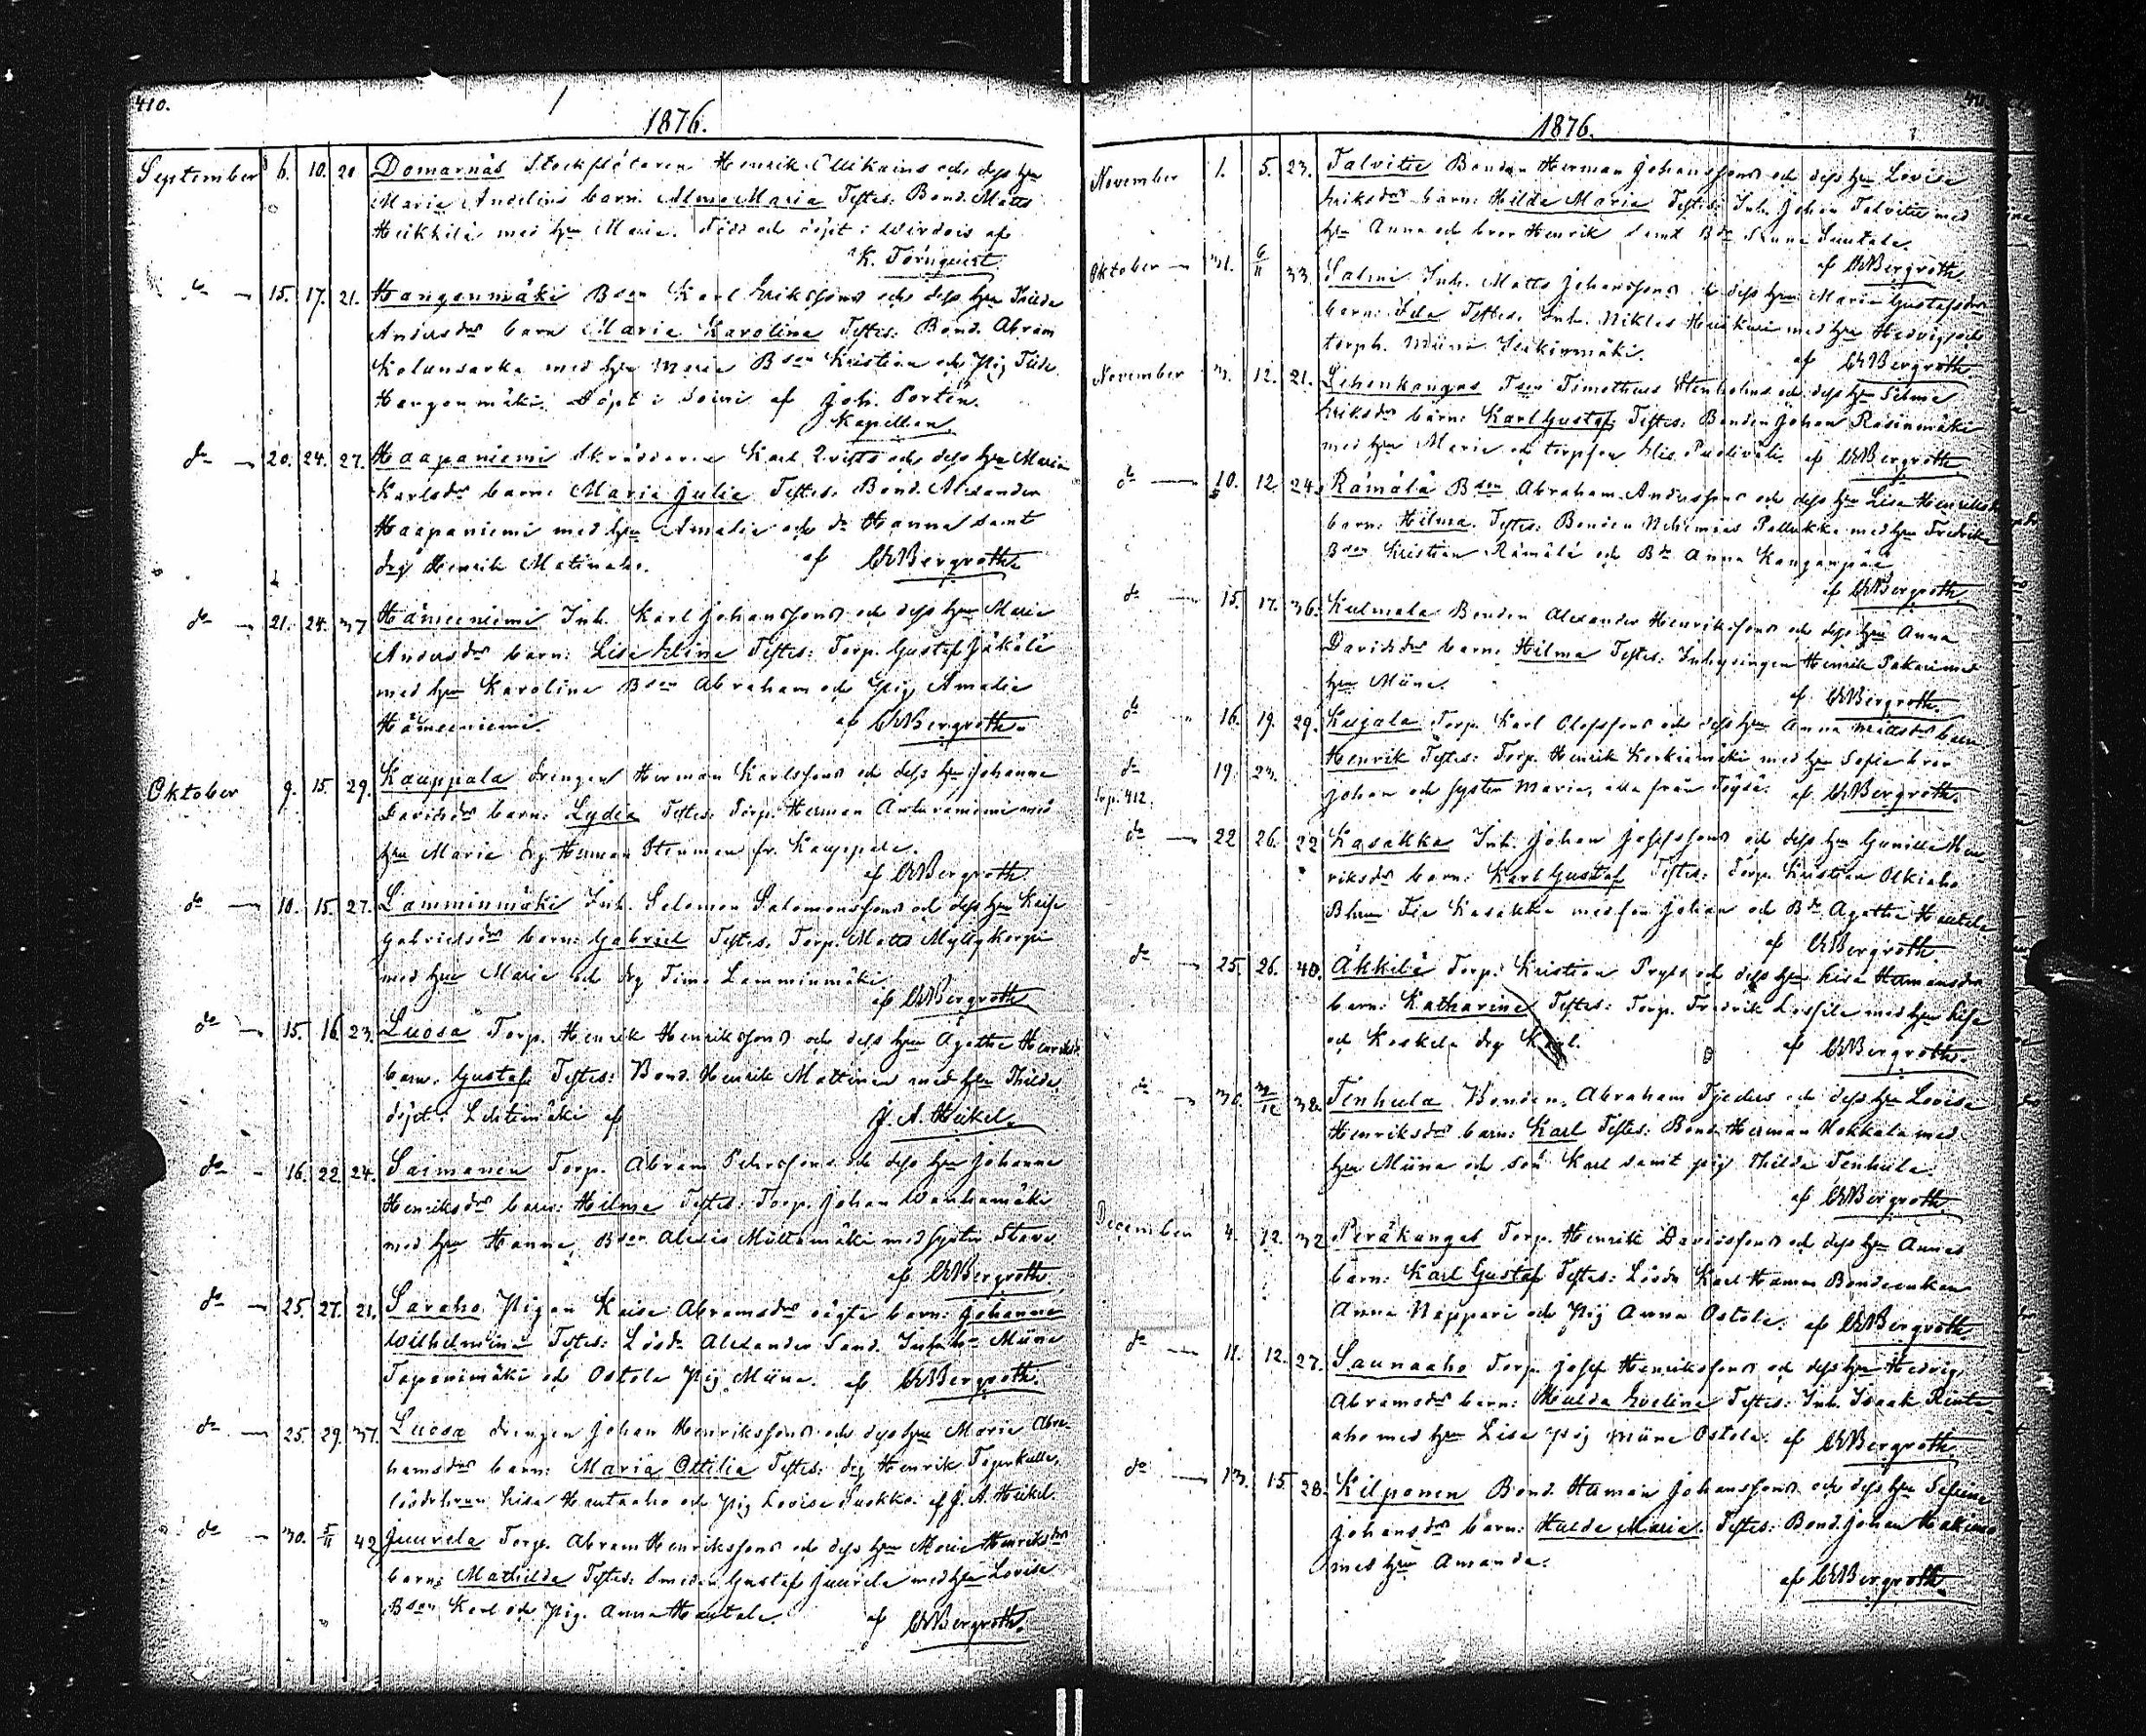 410.
1876.
September 6. 10. 20 Domarnäs Stockflötaren Henrik Ollikains och dess hu
Maria Andelins barn: Alma Maria Testes: Bond. Matts
Heikkilä med hu Maria. Född och döpt i Wirdois af
K. Törnqvist.
do 15. 17. 21. Hangonmäki Bson Karl Erikssons och dess hu Thilda
Andersdrs barn Maria Karolina Testes: Bond. Abram
med hu Maria Bson Kristian och Pig
Hangonmäki. Döpt i Soini af Joh. Portén.
Kapellan.
do 20. 24. 27. Haapaniemi Skräddaren Karl Qvists och dess hu Maria
Karlsdrs barn: Maria Julia Testes: Bond. Alexander
Haapaniemi med hu Amalia och do Hanna samt
drg Henrik af ChBergroth.
do 21. 24. 37 Hämeeniemi Inh. Karl Johanssons och dess hu Maria
Andersdrs barn: Lisa Elina Testes: Torp. Gustaf Jäkälä
med hu Karolina Bson Abraham och Pig Amalia
Hämeeniemi. af ChBergroth.
Oktober 9. 15. 29. Kauppala drengen Herman Karlssons och dess hu Johanna
Davidsdrs barn: Lydia Testes: Torp. Herman med
hu Maria drg Herman Stenman fr. Kauppala.
af ChBergroth
do 10. 15. 27. Lamminmäki Inh. Salomon Salomonssons och dess hu Kaisa
Gabrielsdrs barn: Gabriel Testes. Torp. Matts Myllykorpi
med hu Maria och drg Lamminmäki
af ChBergroth
do 15. 16. 23. Luosa Torp. Henrik Henrikssons och dess hu Agatha Henriksdrs
barn. Gustaf. Testes: Bond. Henrik Mattinen med hu Thilda
döpt i Lehtimäki af J. A. Heikel.
do 16. 22. 24. Saimanen Torp. Abram Pehrssons och dess hu Johanna
Henriksdrs barn: Hilma Testes: Torp. Johan Wanhamäki
med hu Hanna, Bson Alexis med syster
af ChBergroth.
do 25. 27. 21. Saraho Pigan Kaisa Abramsdrs oägta barn: Johanna
Wilhelmina Testes: Alexander Sand. Miina
Tapanimäki och Ostola Pig Miina. af ChBergroth.
do 25. 29. 37. Luosa drengen Johan Henrikssons och dess hu Maria Abra-
hamsdrs barn: Maria Ottilia Testes: drg Henrik
Lisa Hautaaho och Pig Lovisa Suokko. af J. A. Heikel.
do 30. 5/11 42 Juurela Torp. Abram Henrikssons och dess hu Maria Henriksdrs
barn: Mathilda Testes: Smeden Gustaf Juurela med hu Lovisa
Bson Karl och Pig. Anna Hautala. af ChBergroth.
1876.
November 1. 5. 23. Talvitie Bonden Herman Johanssons och dess hu Lovisa
Eriksdrs barn: Hilda Maria Testes: Inh. Johan Talvitie med
hu Anna och bror Henrik samt Bdr
af ChBergroth
Oktober 31. 6/11 33 Salmi Inh. Matts Johanssons & dess hu Maria Gustafsdrs
barn: Ida Testes. Inh. Niklas med hu Hedvig och
Miina
af ChBergroth.
November 3. 12. 21. Lehonkangas Tson Timotheus Stenholms och dess hu Selma
Eriksdrs barn: Karl Gustaf Testes: Bonden Johan Rasinmäki
med hu Maria och af ChBergroth
do 10. 12 24. Rämälä Bson Abraham Anderssons och dess hu Lisa Henriksdrs
barn: Hilma. Testes: Bonden Nehemias med hu Fredrika
Bson Kristian Rämälä och Bdr Anna Kangaspää
af ChBergroth
do 15. 17. 36. Kulmala Bonden Alexander Henrikssons och dess hu Anna
Davidsdrs barn: Hilma Testes: Inhysingen Henrik med
hu Miina.
af ChBergroth.
do 16. 19. 29. Kujala Torp. Karl Olofssons och dess hu Anna Mattsdrs barn
Henrik Testes: Torp. Henrik med hu Sofia bror
do 19. 23. Johan och syster Maria, alla från Töysä. af ChBergroth.
412.
do 22 26. 22 Kasakka Inh. Johan Josefssons och dess hu Gunilla Hen
riksdrs barn: Karl Gustaf Testes: Torp. Kristian Olkiaho
Kasakka med son Johan och Bdr Agatha Hautala
af ChBergroth.
do 25. 26. 40. Äkkilä Torp. Kristian och dess hu Lisa Hermansdrs
barn: Katharina Testes: Torp. Fredrik med hu Lisa
och Koskela drg Karl. af ChBergroth.
do 30. 3/12 32. Tenhula Bonden Abraham och dess hu Lovisa
Henriksdrs barn: Karl Testes: Bond. Herman Kokkala med
hu Miina och son Karl samt pig Thilda Tenhula.
af ChBergroth.
December 4. 12. 32 Peräkangas Torp. Henrik Davidssons och dess hu Annas
barn: Karl Gustaf Testes: Karl Bondeenkan
Anna Näppari och Pig Anna Ostola. af ChBergroth.
do 11. 12. 27. Saunaaho Torp. Josef Henrikssons och dess hu Hedvig
Abramsdrs barn: Hulda Evelina Testes: Inh. Isaak Rinta-
aho med hu Lisa Pig Miina Ostola. af ChBergroth
do 13. 15. 28. Kilponen Bond. Herman Johanssons och dess hu
Johansdrs barn: Hulda Maria. Testes: Bond. Johan
med hu Amanda.
af ChBergroth.